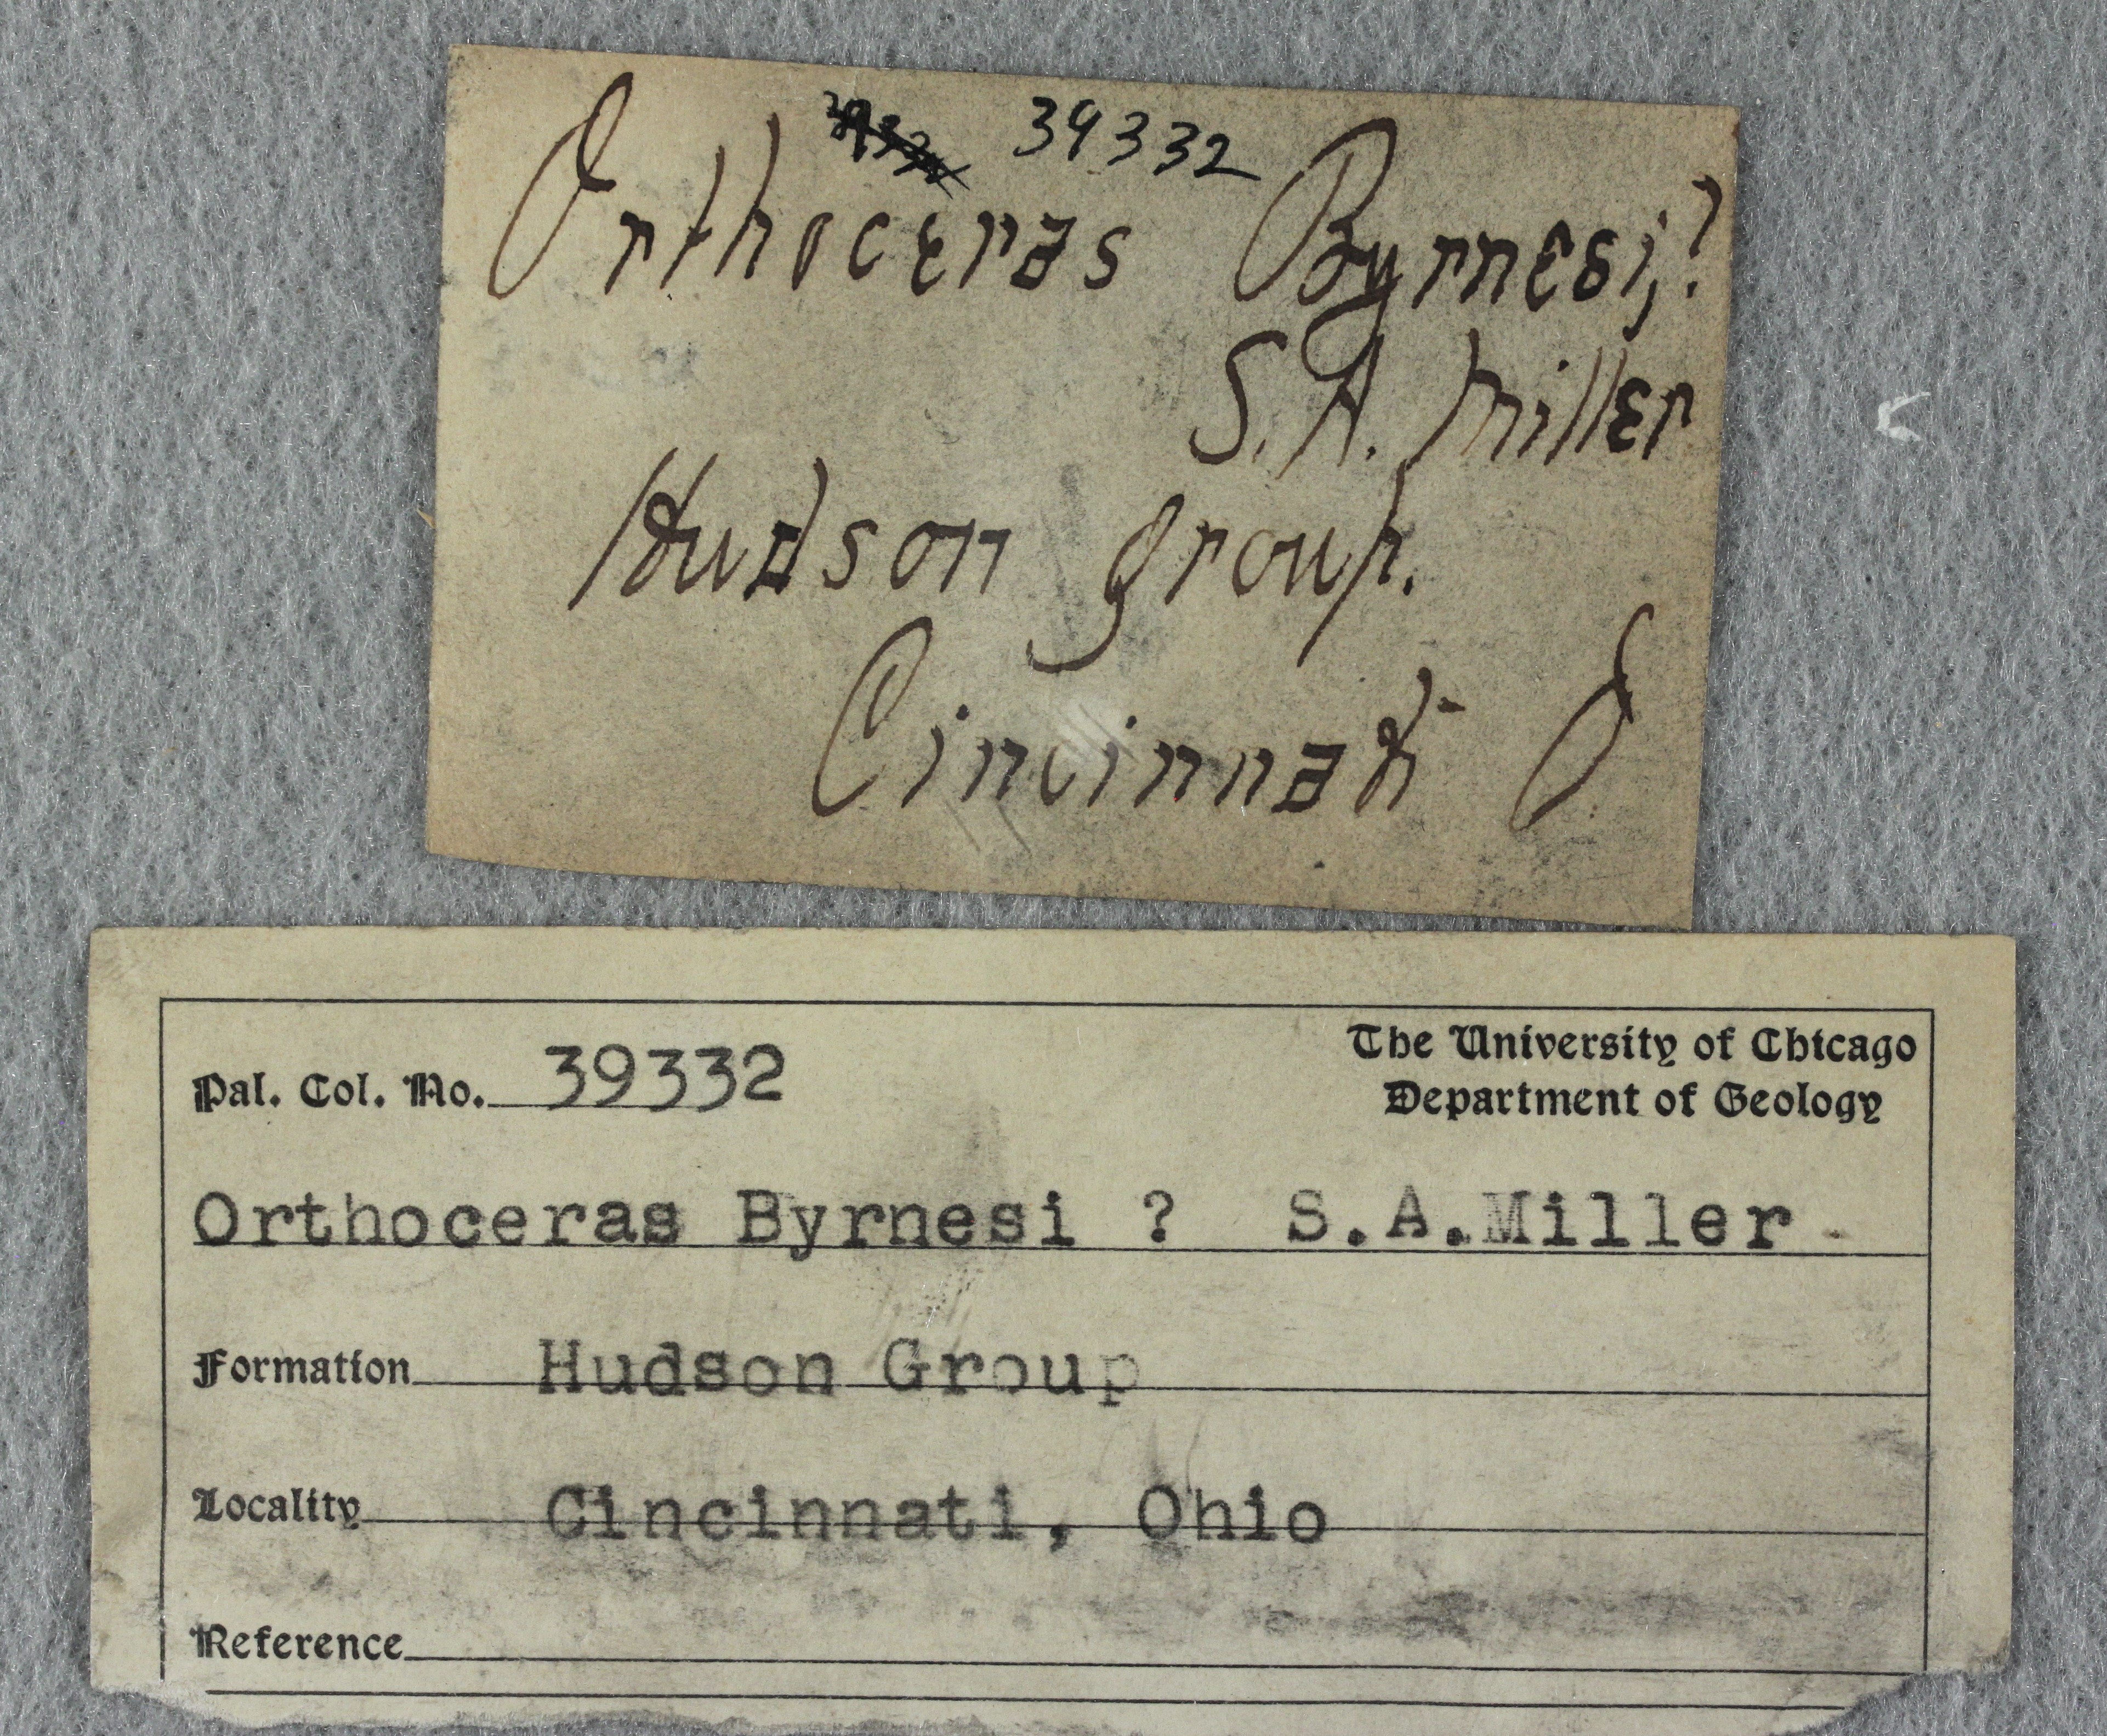 39332
Orthoceras Byrnesi,?
S. A. Miller
Hudson group.
Cincinnati O
Pal. Col. No. 39332
The University of Chicago
Department of Geology
Orthoceras Byrnesi ? S.A.Miller
Formation Hudson Group
Locality Cincinnati, Ohio
Reference